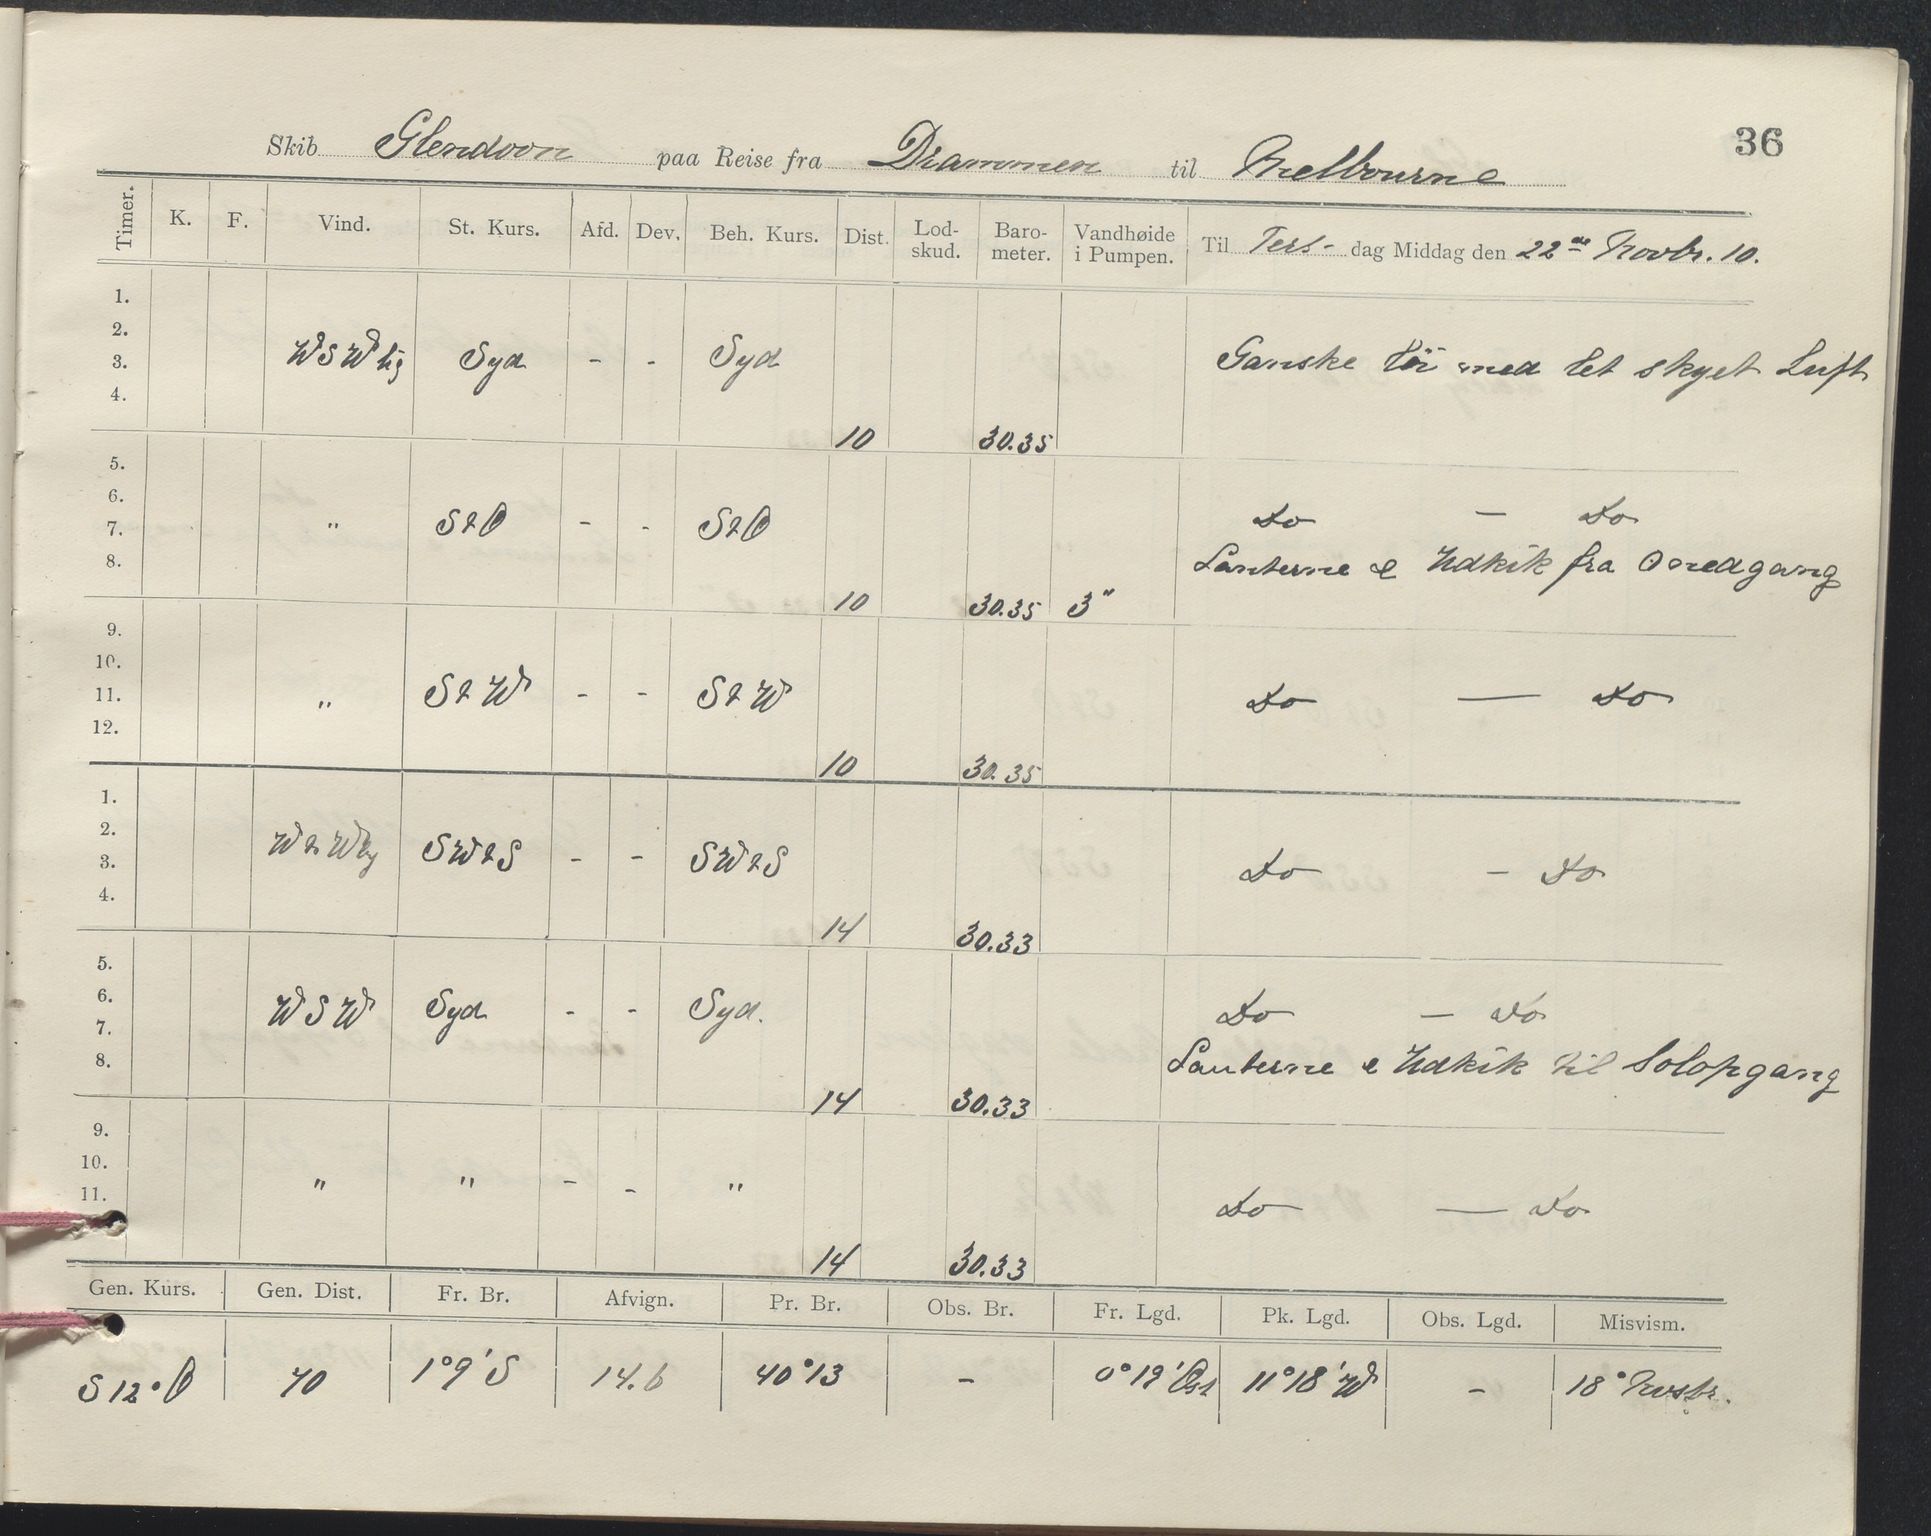 36
Skib Glendoon paa Reise fra Drammen til Melbourne
Timer. K. F. Vind. St. Kurs. Afd. Dev. Beh. Kurs. Dist. Lod-skud. Baro-meter. Vandhøide i Pumpen. Til Tirs- dag Middag den 22de Novbr. 10.
1.
2.
3. WSWlig Syd - - Syd Ganske med let skyet Luft
4.
10 30.35
5.
6.
7. " StO - - StO Do - Do
8. Lanterne & Udkik fra nedgang
10 30.35 3"
9.
10.
11. " StW - - StW Do — Do
12.
10 30.35
1.
2.
3. WtWlig SWtS - - SWtS Do - Do
4.
14 30.33
5.
6. WSW Syd - - Syd. Do - Do
7.
8. Lanterne & Udkik til Solopgang
14 30.33
9.
10.
11. " " - - " Do — Do
14 30.33
Gen. Kurs. Gen. Dist. Fr. Br. Afvign. Pr. Br. Obs. Br. Fr. Lgd. Pk. Lgd. Obs. Lgd. Misvism.
S 12° O 70 1°9' S 14.6 40°13 - 0°19' Ost 11°18' W - 18°